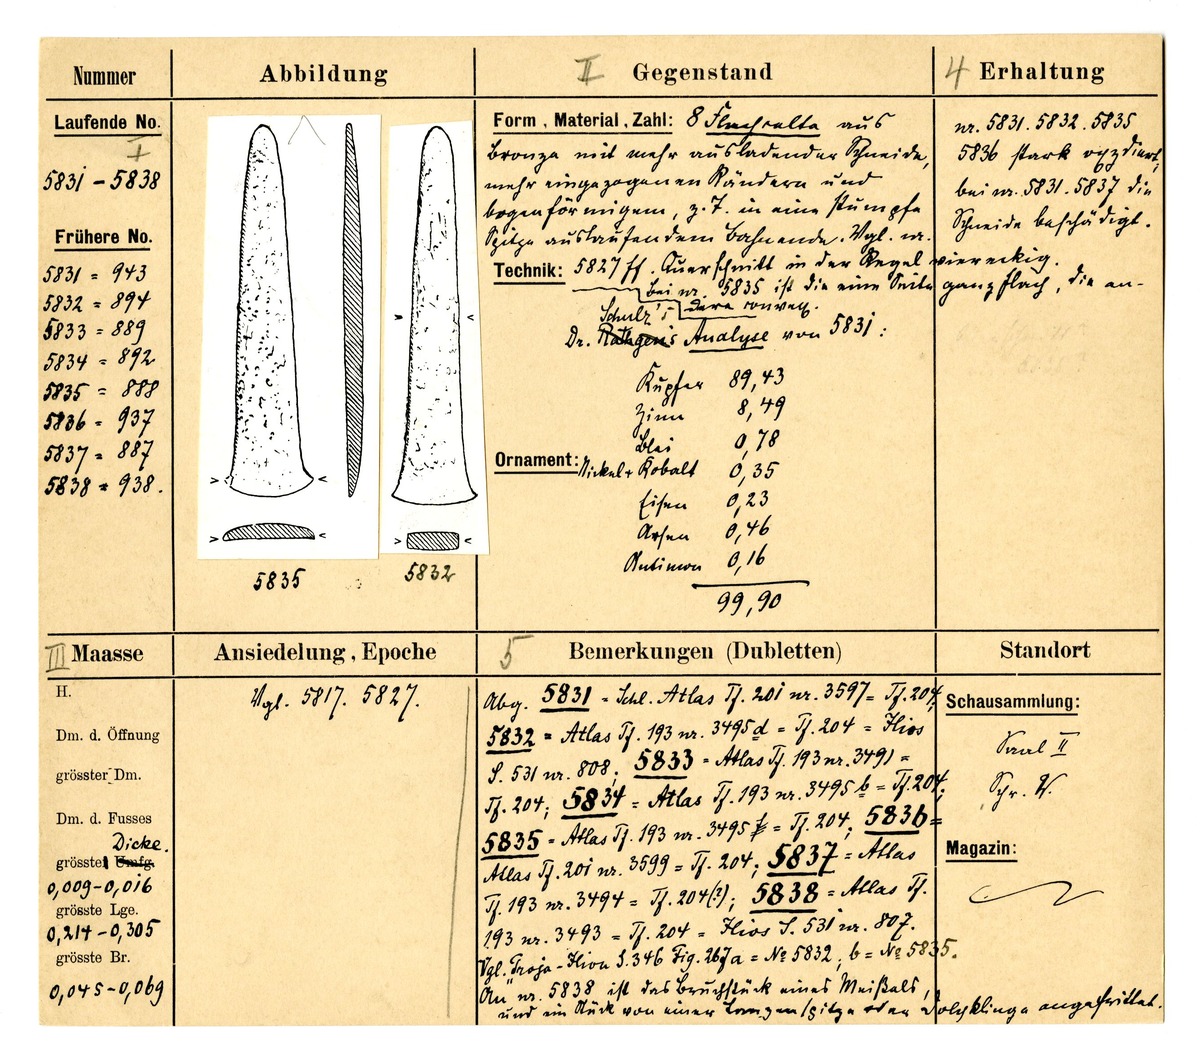 Nummer
Laufende No.
I
5831 – 5838
Frühere No.
5831 = 943
5832 = 894
5833 = 889
5834 = 892
5835 = 888
5836 = 937
5837 = 887
5838 = 938.
Abbildung
5835
5832
II Gegenstand
Form, Material, Zahl: 8 Flachcelte aus
Bronze mit mehr ausladender Schneide,
mehr eingezogenen Rändern und
bogenförmigem, z. T. in eine stumpfe
Spitze auslaufendem Bahnende. Vgl. nr.
Technik: 5827 ff. Querschnitt in der Regel viereckig.
bei nr. 5835 ist die eine Seite ganz flach, die an-
dere convex.
Schulz's
Dr. Rathgen's Analyse von 5831:
Kupfer 89,43
Zinn 8,49
Blei 0,78
Ornament: Nickel + Kobalt 0,35
Eisen 0,23
Arsen 0,46
Antimon 0,16
99,90
4 Erhaltung
nr. 5831. 5832. 5835
5836 stark oxydiert,
bei nr. 5831. 5837 die
Schneide beschädigt.
III Maasse
H.
Dm. d. Öffnung
grösster Dm.
Dm. d. Fusses
Dicke.
grösste Umfg.
0,009–0,016
grösste Lge.
0,214–0,305
grösste Br.
0,045–0,069
Ansiedelung, Epoche
Vgl. 5817. 5827.
5 Bemerkungen (Dubletten)
Abg. 5831 = Schl. Atlas Tf. 201 nr. 3597 = Tf. 204;
5832 = Atlas Tf. 193 nr. 3495 d = Tf. 204 = Ilios
S. 531 nr. 808; 5833 = Atlas Tf. 193 nr. 3491 =
Tf. 204; 5834 = Atlas Tf. 193 nr. 3495 b = Tf. 204;
5835 = Atlas Tf. 193 nr. 3495 f = Tf. 204; 5836 =
Atlas Tf. 201 nr. 3599 = Tf. 204; 5837 = Atlas
Tf. 193 nr. 3494 = Tf. 204(?); 5838 = Atlas Tf.
193 nr. 3493 = Tf. 204 = Ilios S. 531 nr. 807.
Vgl. Troja-Ilion S. 346 Fig. 267 a = No 5832, b = No 5835.
An nr. 5838 ist das Bruchstück eines Meißels,
und ein Stück von einer Lanzenspitze oder Dolchklinge angefrittet.
Standort
Schausammlung:
Saal II
Schr.
Magazin: